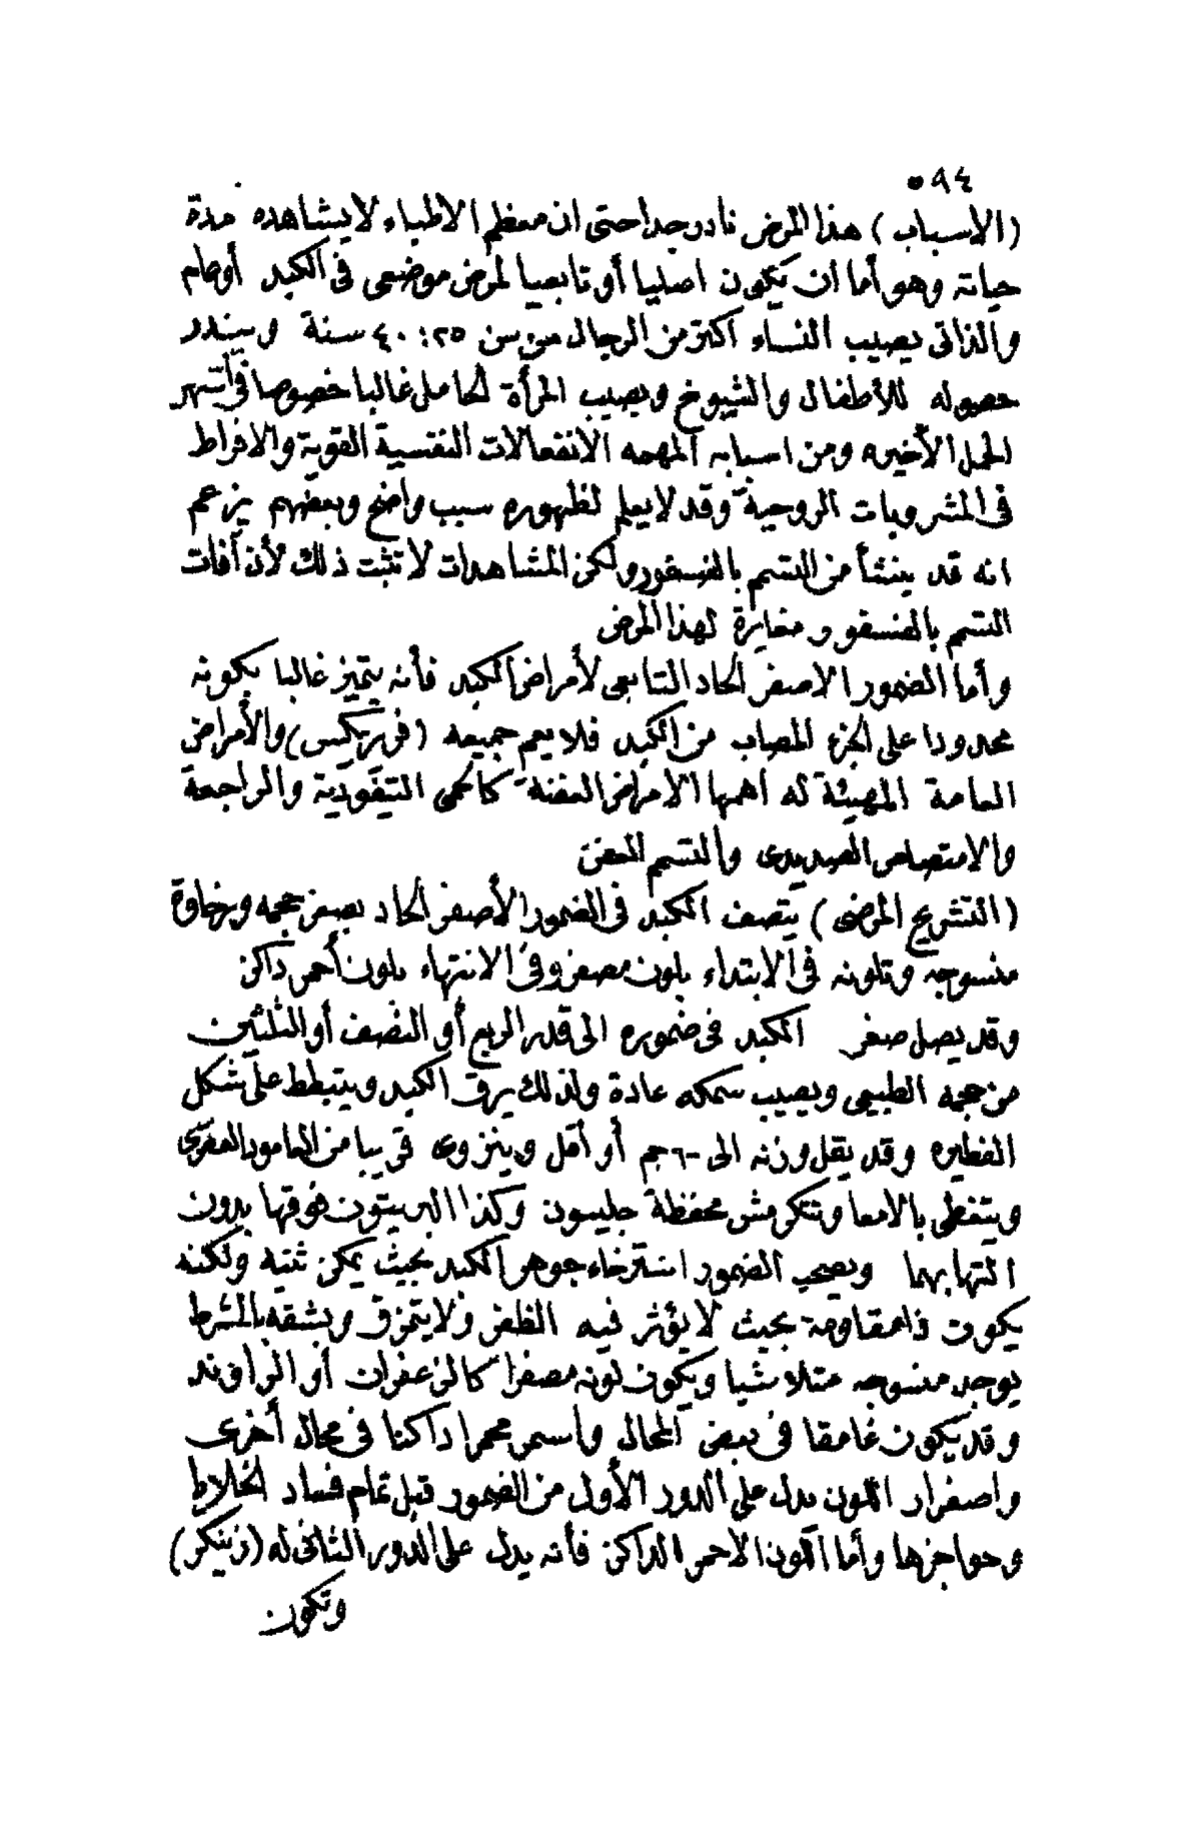 ٥٩٤
(الاسباب) هذا المرض نادر جدا حتى ان معظم الاطباء لا يشاهده مدة
حياته وهو أما ان يكون اصليا أو تابعيا لمرض موضعى فى الكبد أو عام
والذاتى يصيب النساء أكثر من الرجال من سن ٢٥ : ٤٠ سنة ويندر
حصوله للأطفال والشيوخ ويصيب المرأة الحامل غالبا خصوصا فى أشهر
الحمل الأخيره ومن اسبابه المهمه الانفعالات النفسية القوية والافراط
فى المشروبات الروحية وقد لا يعلم لظهوره سبب واضح وبعضهم يزعم
انه قد ينشأ من التسمم بالفسفور ولكن المشاهدات لا تثبت ذلك لأن آفات
التسمم بالفسفور مغايرة لهذا المرض
وأما الضمور الاصفر الحاد التابعى لأمراض الكبد فأنه يتميز غالبا بكونه
محدودا على الجزء المصاب من الكبد فلا يعم جميعه (فريركس) والأمراض
العامة المهيئة له أهمها الأمراض العفنة كالحمى التيفودية والراجعة
والامتصاص الصديدى والتسمم العفن
(التشريح المرضى) يتصف الكبد فى الضمور الأصفر الحاد بصغر حجمه ورخاوة
منسوجه وتلونه فى الابتداء بلون مصفر وفى الانتهاء بلون أحمر داكن
وقد يصل صغر الكبد فى ضموره الى قدر الربع أو النصف أو الثلثين
من حجمه الطبيعى ويصيب سمكه عادة ولذلك يرق الكبد ويتبطط على شكل
الفطيره وقد يقل وزنه الى ٦٠٠ جم أو أقل وينزوى قريبا من العامود الفقرى
ويتغطى بالامعا وتتكرمش محفظة جليسون وكذا البريتون فوقها بدون
التهابهما ويصحب الضمور استرخاء جوهر الكبد بحيث يمكن ثنيه ولكنه
يكون ذا مقاومة بحيث لا يؤثر فيه الظفر ولا يتمزق وبشقه بالمشرط
يوجد منسوجه متلاشيا ويكون لونه مصفرا كالزعفران أو الراوند
وقد يكون غامقا فى بعض المحال وأسمر محمرا داكنا فى محال أخرى
واصفرار اللون يدل على الدور الأول من الضمور قبل تمام فساد الخلايا
وحواجزها وأما اللون الاحمر الداكن فأنه يدل على الدور الثانى له (زينكر)
وتكون